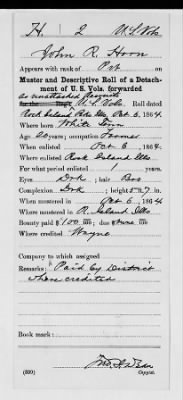 H. 2 U.S. Vols.
John R. Horn
Appears with rank of Pvt on
Muster and Descriptive Roll of a Detach-
ment of U. S. Vols. forwarded
as unattached Recruits
for the U.S. Vols. Roll dated
Rock Island Ills, Oct 6, 1864.
Where born White Tenn
Age 20 years; occupation Farmer
When enlisted Oct 6, 1864
Where enlisted Rock Island Ills
For what period enlisted 1 years.
Eyes Drk; hair Bro
Complexion Drk; height 5 ft. 7 in.
When mustered in Oct 6, 1864
Where mustered in R. Island Ills
Bounty paid $100; due $
Where credited Wayne
Company to which assigned
Remarks: Paid by District
where credited
Book mark:
(339) Copyist.